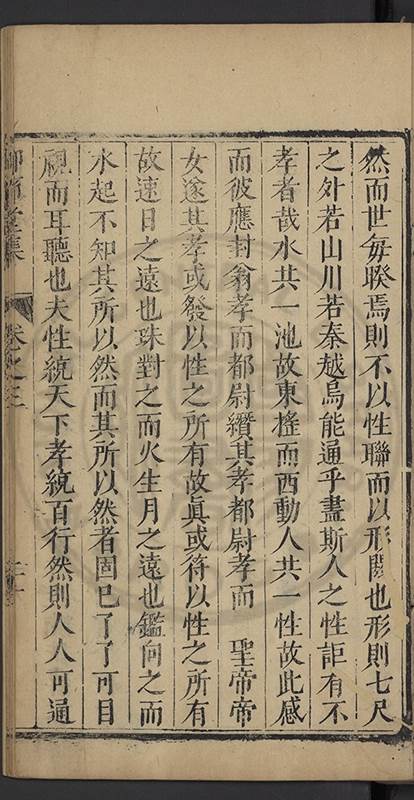 然而世每暌焉則不以性聯而以形閡也形則七尺
之外若山川若秦越烏能通乎盡斯人之性詎有不
孝者哉水共一池故東搖而西動人共一性故此感
而彼應封翁孝而都尉纘其孝都尉孝而 聖帝帝
女遂其孝或發以性之所有故眞或符以性之所有
故速日之遠也珠對之而火生月之遠也鑑向之而
水起不知其所以然而其所以然者固已了了可目
視而耳聽也夫性統天下孝統百行然則人人可通
集 卷之三